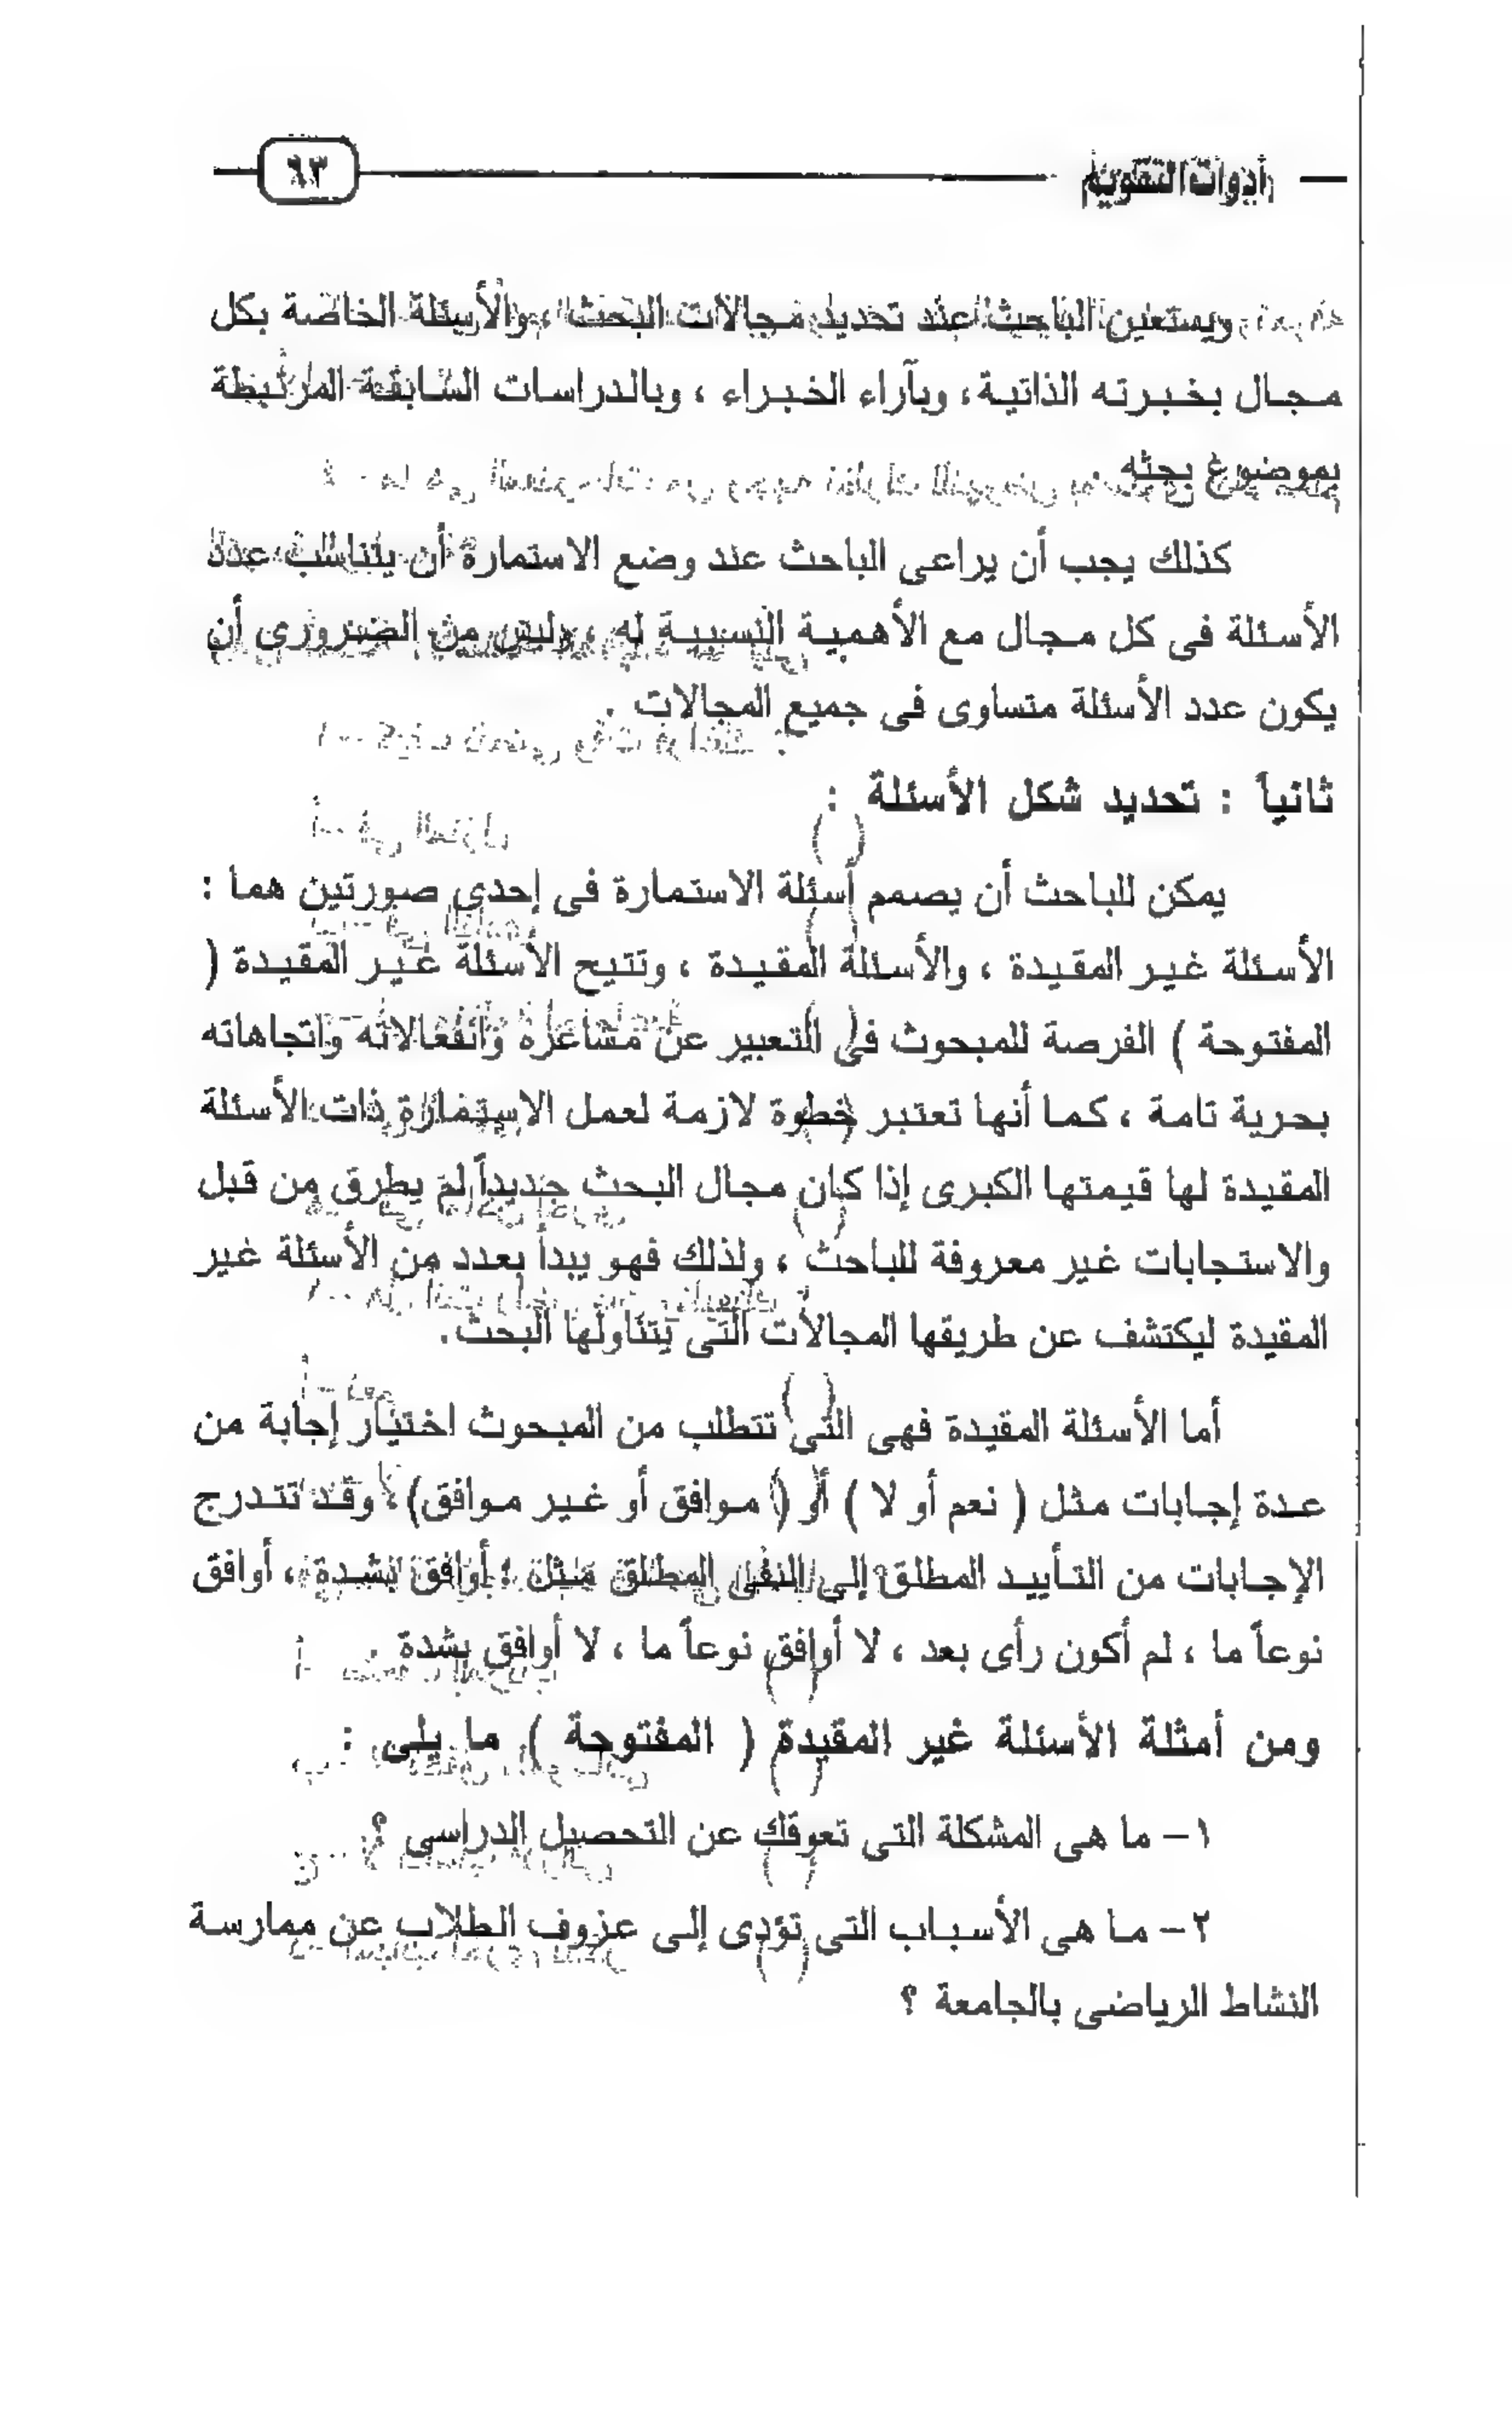 أدوات التقويم
٦٣
ويستعين الباحث عند تحديد مجالات البحث ، والأسئلة الخاصة بكل
مجال بخبرته الذاتية ، وبآراء الخبراء ، وبالدراسات السابقة المرتبطة
بموضوع بحثه .
كذلك يجب أن يراعى الباحث عند وضع الاستمارة أن يتناسب عدد
الأسئلة فى كل مجال مع الأهمية النسبية له ، وليس من الضرورى أن
يكون عدد الأسئلة متساوى فى جميع المجالات .
ثانياً : تحديد شكل الأسئلة :
يمكن للباحث أن يصمم أسئلة الاستمارة فى إحدى صورتين هما :
الأسئلة غير المقيدة ، والأسئلة المقيدة ، وتتيح الأسئلة غير المقيدة (
المفتوحة ) الفرصة للمبحوث فى التعبير عن مشاعره وانفعالاته واتجاهاته
بحرية تامة ، كما أنها تعتبر خطوة لازمة لعمل الاستمارة ذات الأسئلة
المقيدة لها قيمتها الكبرى إذا كان مجال البحث جديداً لم يطرق من قبل
والاستجابات غير معروفة للباحث ، ولذلك فهو يبدأ بعدد من الأسئلة غير
المقيدة ليكتشف عن طريقها المجالات التى يتناولها البحث .
أما الأسئلة المقيدة فهى التى تتطلب من المبحوث اختيار إجابة من
عدة إجابات مثل ( نعم أو لا ) أو ( موافق أو غير موافق) ، وقد تتدرج
الإجابات من التأييد المطلق إلى النفى المطلق مثل : أوافق بشدة ، أوافق
نوعاً ما ، لم أكون رأى بعد ، لا أوافق نوعاً ما ، لا أوافق بشدة .
ومن أمثلة الأسئلة غير المقيدة ( المفتوحة ) ما يلى :
١- ما هى المشكلة التى تعوقك عن التحصيل الدراسى ؟
٢- ما هى الأسباب التى تؤدى إلى عزوف الطلاب عن ممارسة
النشاط الرياضى بالجامعة ؟